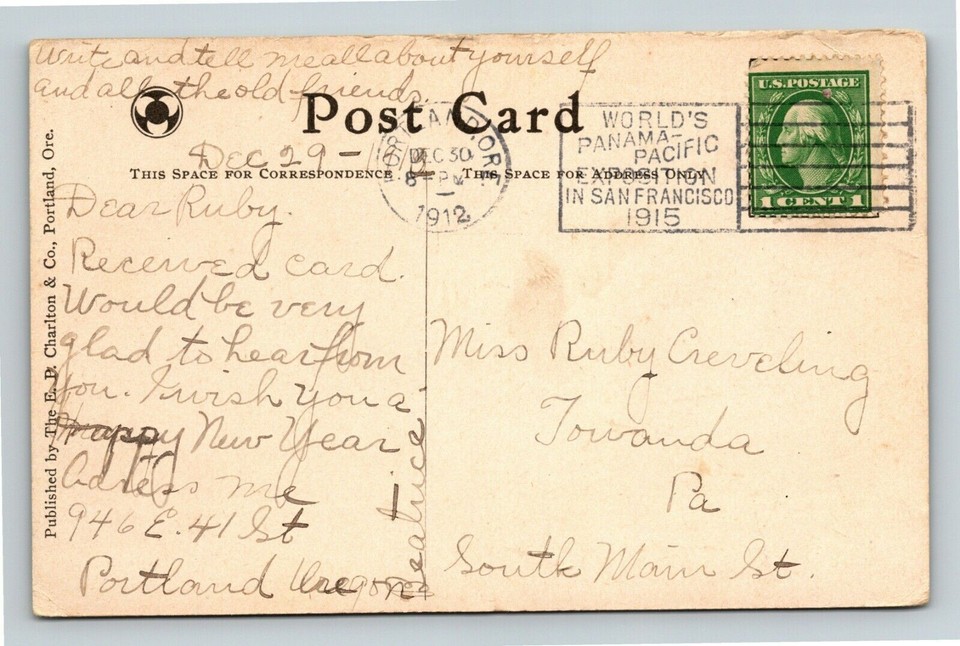 Write and tell me all about yourself
and all the old friends.
Post Card
Dec 29 - 12
THIS SPACE FOR CORRESPONDENCE
THIS SPACE FOR ADDRESS ONLY
PORTLAND, ORE.
DEC 30
8 - PM
1912
WORLD'S
PANAMA-
PACIFIC
EXPOSITION
IN SAN FRANCISCO
1915
U.S. POSTAGE
1 CENT 1
Published by The E. P. Charlton & Co., Portland, Ore.
Dear Ruby.
Received card.
Would be very
glad to hear from
you. I wish you a
Happy New Year
me
946 E. 41 St
Portland Oregon
Beatrice
Miss Ruby Creveling
Towanda
Pa
South Main St.